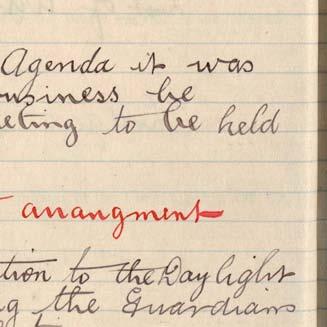 Agenda it was
business be
eeting to be held
arrangment
tion to the Daylight
the Guardians